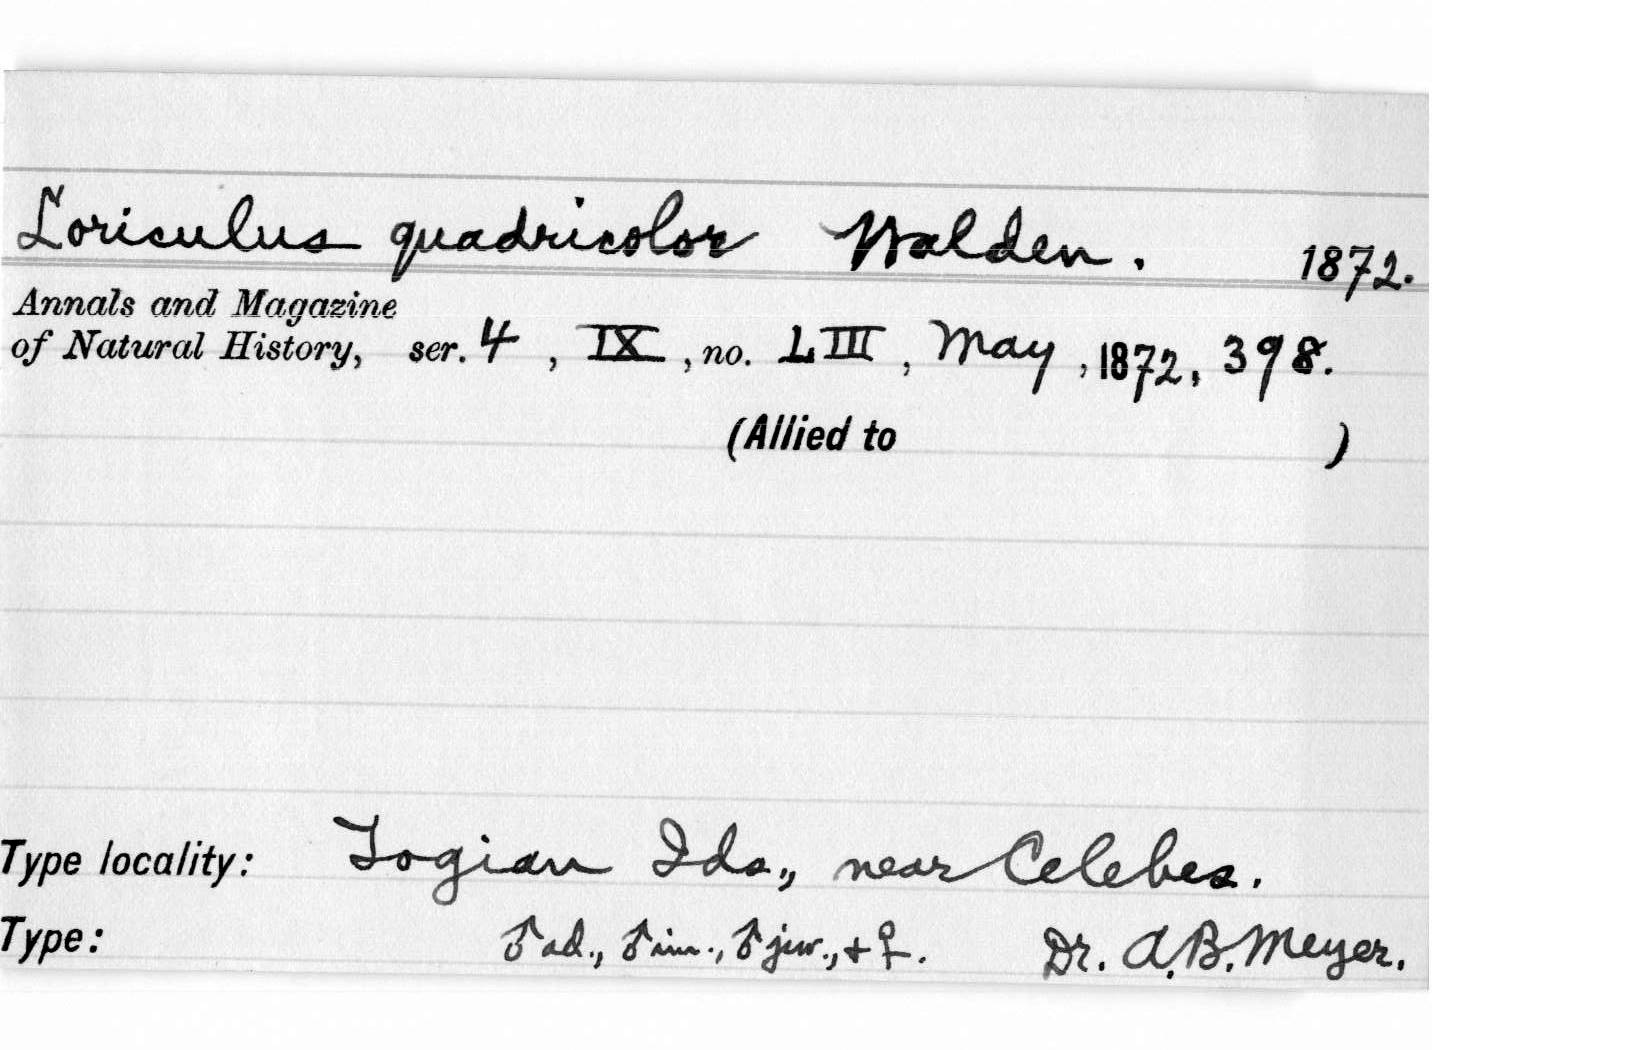 Loriculus quadricolor Walden. 1872.
Annals and Magazine
of Natural History, ser. 4, IX, no. LIII, May, 1872, 398.
(Allied to )
Type locality: Togian Ids., near Celebes.
Type: ♂ ad., ♂ im., ♂ juv., + ♀. Dr. A. B. Meyer.